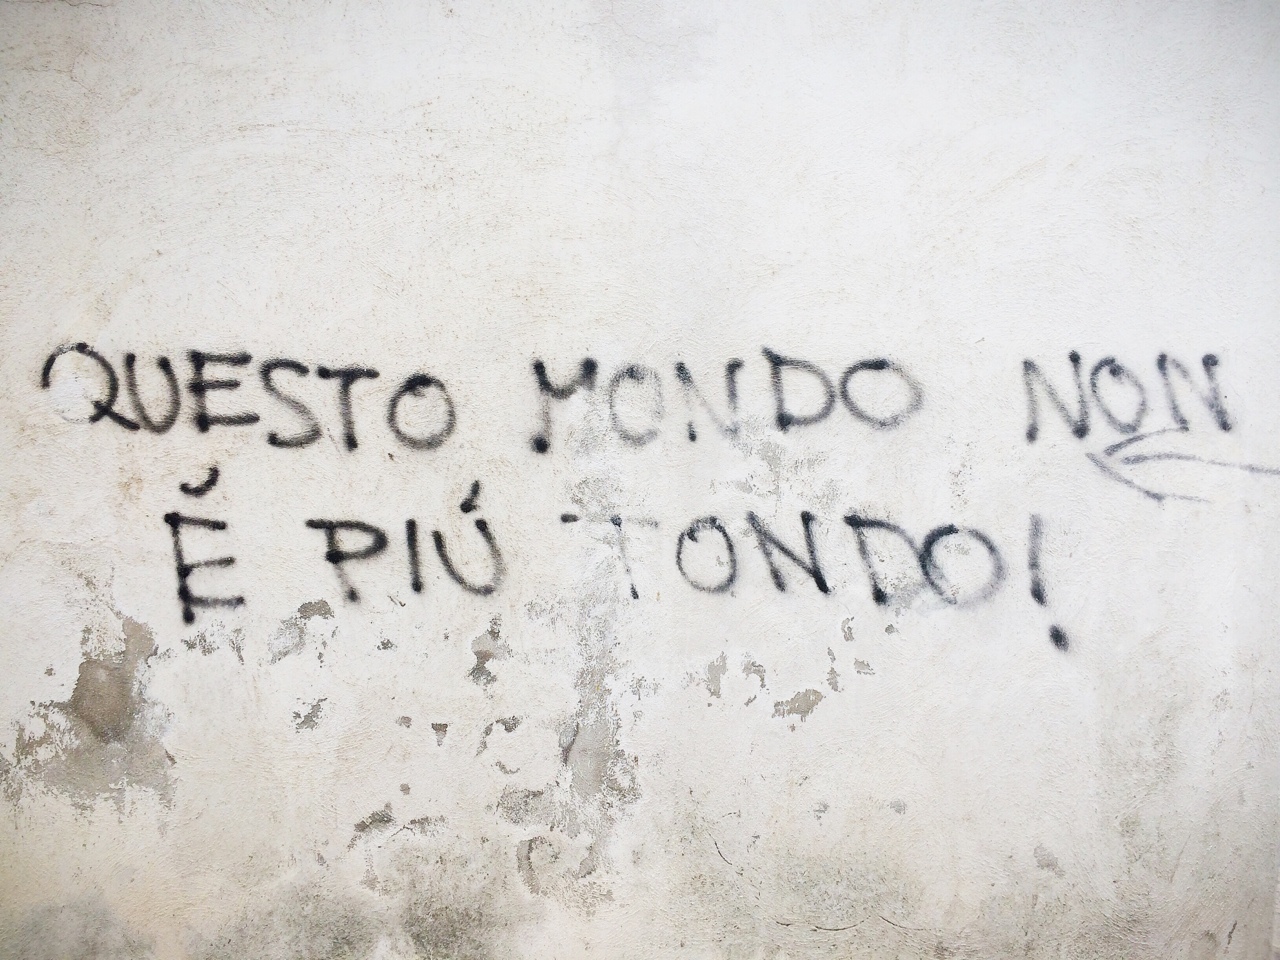 QUESTO MONDO NON
É PIÚ TONDO!